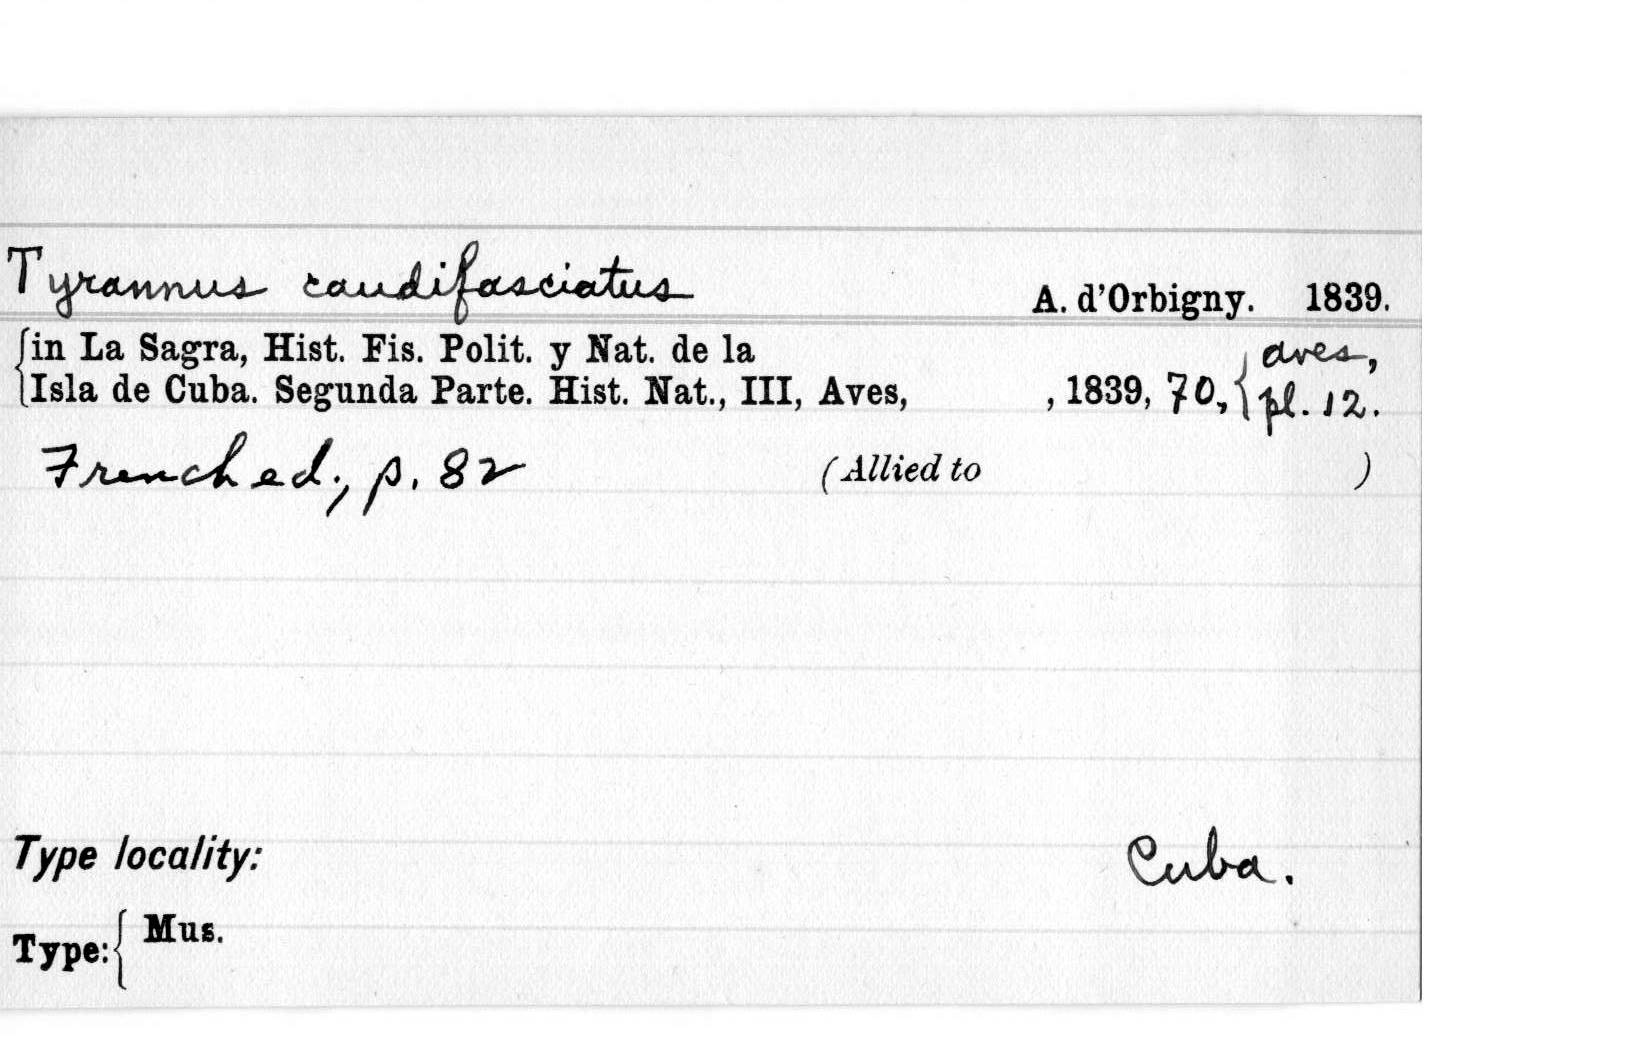 Tyrannus caudifasciatus A. d'Orbigny. 1839.
in La Sagra, Hist. Fis. Polit. y Nat. de la aves,
Isla de Cuba. Segunda Parte. Hist. Nat., III, Aves, , 1839, 70, pl. 12.
French ed., p. 82 (Allied to )
Type locality: Cuba.
Type: Mus.